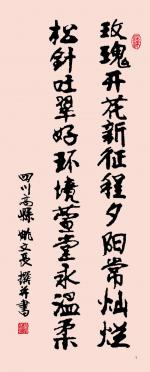 玫瑰开花新征程夕阳常灿烂
松针旺翠好环境萱堂永温柔
四川高县 姚文长 撰并书